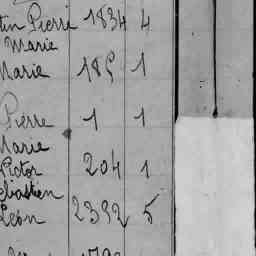 tin Pierre 1834 4
Marie
Marie 185 1
Pierre 1 1
Marie
Victor 204 1
ebastien
Léon 2392 5